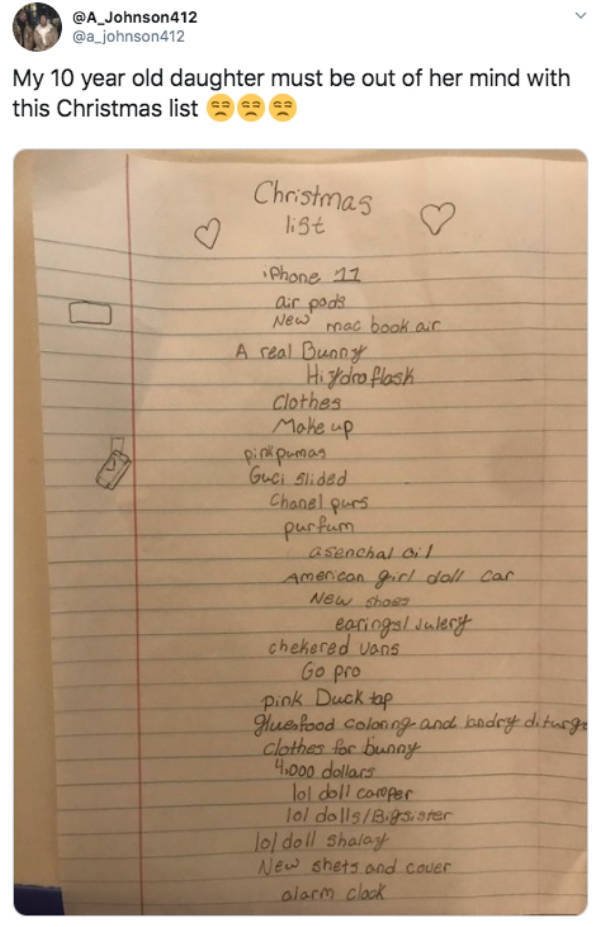 @A_Johnson412
@a_johnson412
My 10 year old daughter must be out of her mind with
this Christmas list 😒😒😒
Christmas
list
iPhone 11
air pods
New mac book air
A real Bunny
Hi ydro flask
Clothes
Make up
pink pumas
Guci slided
Chanel purs
purfum
asenchal oil
American girl doll car
New shoes
earings/Julery
chekered vans
Go pro
pink Duck tap
glue, food coloring and landry diturge
Clothes for bunny
4,000 dollars
lol doll camper
lol dolls/Bigsister
lol doll shalay
New shets and cover
alarm clock